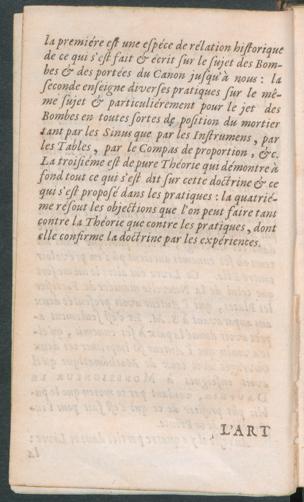 la premiére est une espéce de rélation historique
de ce qui s'est fait & écrit sur le sujet des Bom-
bes & des portées du Canon jusqu'à nous : la
seconde enseigne diverses pratiques sur le mê-
me sujet & particuliérement pour le jet des
Bombes en toutes sortes de position du mortier
tant par les Sinus que par les Instrumens, par
les Tables, par le Compas de proportion, &c.
La troisiéme est de pure Théorie qui démontre à
fond tout ce qui s'est dit sur cette doctrine & ce
qui s'est proposé dans les pratiques : la quatrié-
me résout les objections que l'on peut faire tant
contre la Théorie que contre les pratiques, dont
elle confirme la doctrine par les expériences.
L'ART